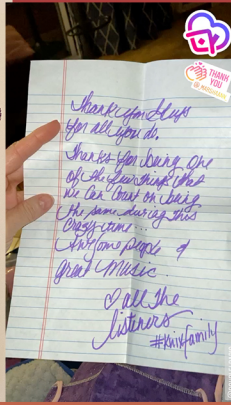 THANK
YOU
Thank you Guys
for all you do.
Thanks for being one
of the few things that
we can count on being
the same during this
crazy time...
Awesome people &
great music.
♡ all the
listeners
#Knixfamily